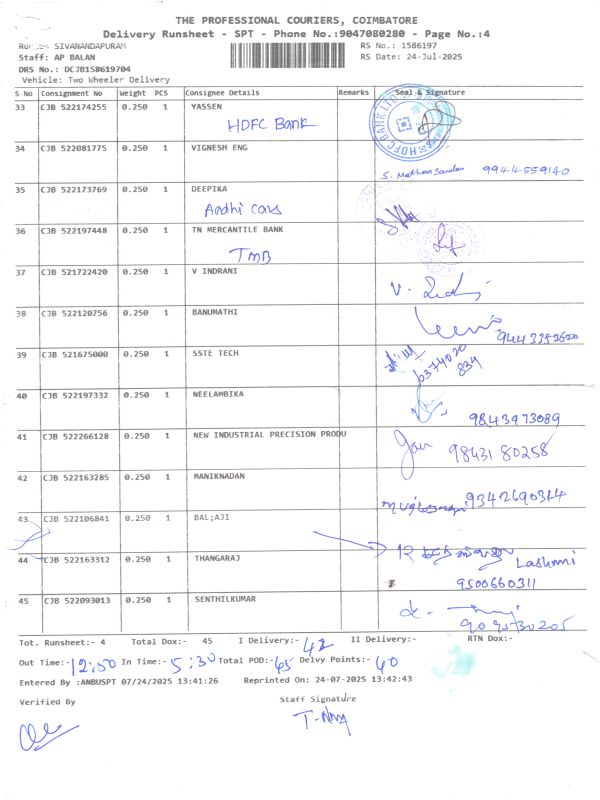 THE PROFESSIONAL COURIERS, COIMBATORE
Delivery Runsheet - SPT - Phone No.:9047080280 - Page No.:4
SIVANANDAPURAM RS No.: 1586197
Staff: AP BALAN RS Date: 24-Jul-2025
DRS No.: DCJB158619704
Vehicle: Two Wheeler Delivery
S No Consignment No Weight PCS Consignee Details Remarks Seal & Signature
33 CJB 522174255 0.250 1 YASSEN
HDFC Bank
34 CJB 522081775 0.250 1 VIGNESH ENG
9944559140
35 CJB 522173769 0.250 1 DEEPIKA
Ardhi cars
36 CJB 522197448 0.250 1 TN MERCANTILE BANK
TMB
37 CJB 521722420 0.250 1 V INDRANI
38 CJB 522120756 0.250 1 BANUMATHI
39 CJB 521675000 0.250 1 SSTE TECH
6374020
834
40 CJB 522197332 0.250 1 NEELAMBIKA
9843973089
41 CJB 522266128 0.250 1 NEW INDUSTRIAL PRECISION PRODU
98431 80258
42 CJB 522163285 0.250 1 MANIKNADAN
43 CJB 522106841 0.250 1 BAL;AJI
44 CJB 522163312 0.250 1 THANGARAJ
Lashmi
9500660311
45 CJB 522093013 0.250 1 SENTHILKUMAR
Tot. Runsheet:- 4 Total Dox:- 45 I Delivery:- 42 II Delivery:- RTN Dox:-
Out Time:- 12:50 In Time:- 5:30 Total POD:- 45 Delvy Points:- 40
Entered By :ANBUSPT 07/24/2025 13:41:26 Reprinted On: 24-07-2025 13:42:43
Verified By Staff Signature